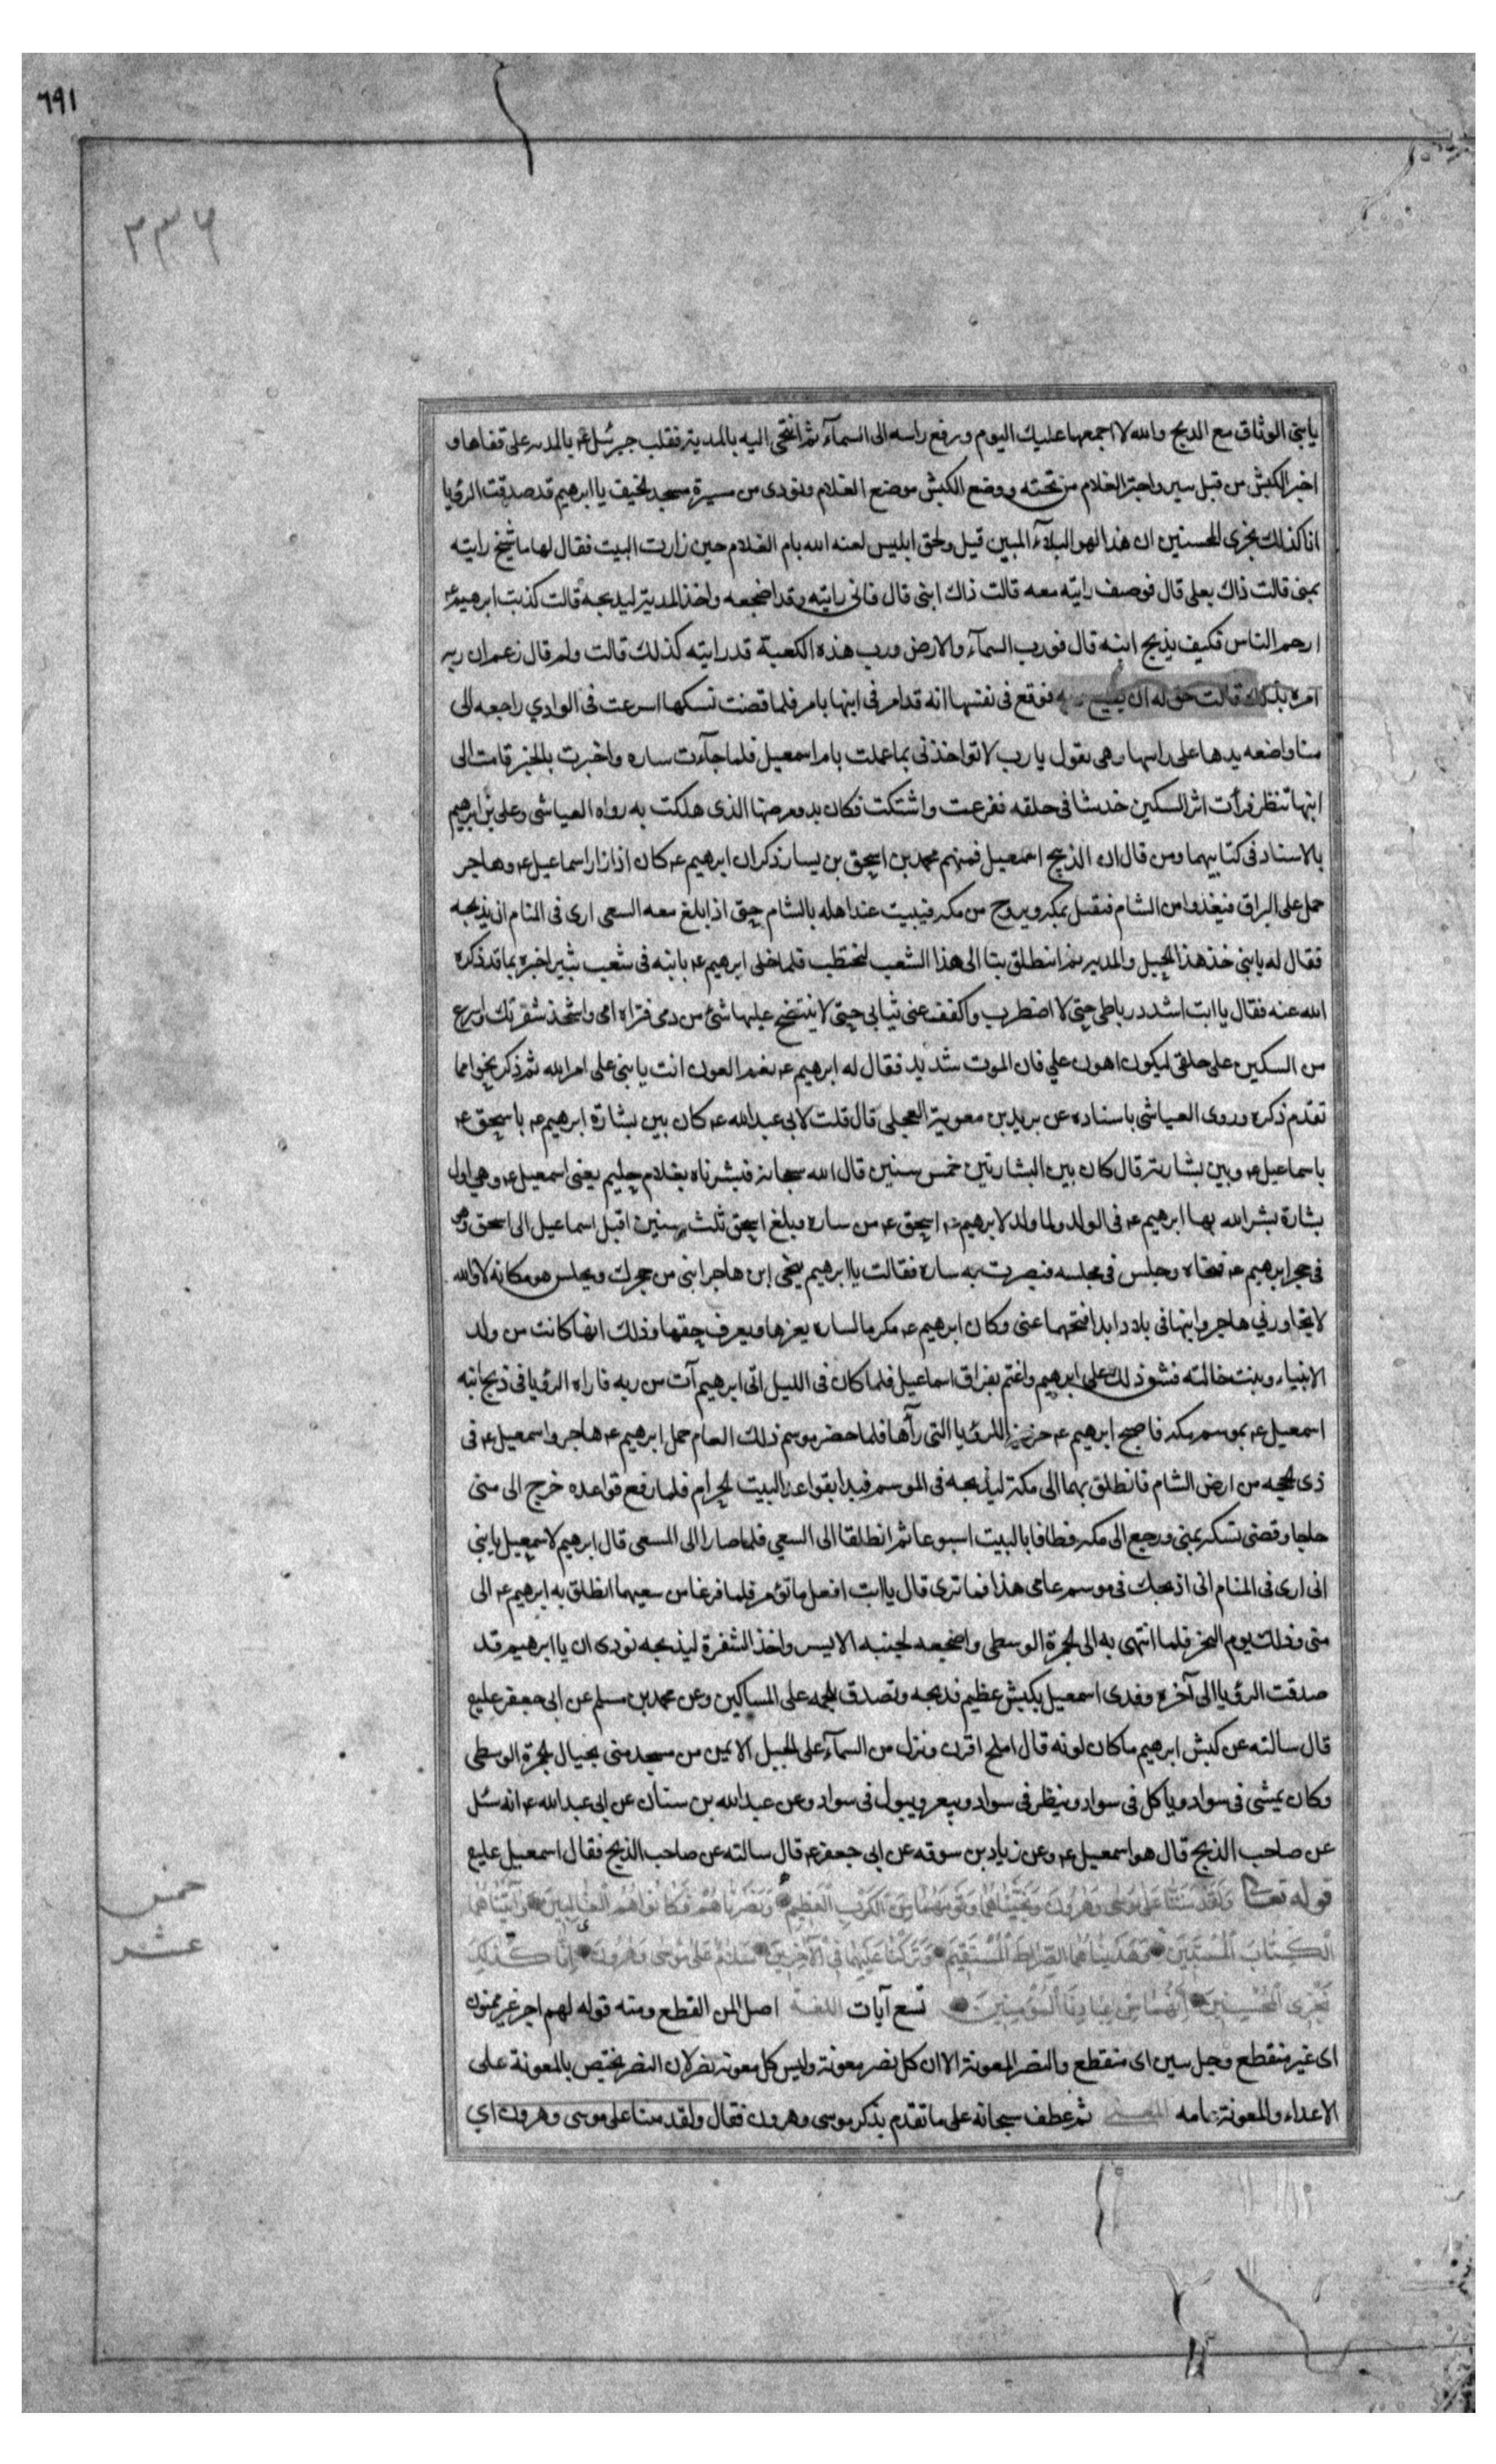 ٦٩١
٢٣٦
يا بنى الوثاق مع الذبح والله لا اجمعها عليك اليوم ورفع راسه الى السمآء ثم انتحى اليه بالمدية فقلب جبرئيل عم المدية على قفاها و
اخبر الكبش من قبل ثبير واجتر الغلام من تحته ووضع الكبش موضع الغلام ونودى من مسيرة مسجد الخيف يا ابرهيم قد صدقت الرؤيا
انا كذلك نجزى المحسنين ان هذا لهو البلآء المبين قيل ولحق ابليس لعنه الله بام الغلام حين زارت البيت فقال لها ما شيخ رايته
بمنى قالت ذاك بعلى قال فوصف رايته معه قالت ذاك ابنى قال فانى رايته وقد اضجعه واخذ المدية ليذبحه قالت كذبت ابرهيم عم
ارحم الناس فكيف يذبح ابنه قال فورب السمآء والارض ورب هذه الكعبة قد رايته كذلك قالت ولم قال زعم ان ربه
امره بذلك قالت حق له ان يطيع ربه فوقع فى نفسها انه قد امر فى ابنها بامر فلما قضت نسكها اسرعت فى الوادي راجعه الى
منا واضعه يدها على راسها وهى تقول يا رب لا تواخذنى بما عملت بام اسمعيل فلما جآءت ساره واخبرت بالخبر قامت الى
ابنها تنظر فرأت اثر السكين خدشا فى حلقه ففزعت واشتكت فكان بدو مرضها الذى هلكت به رواه العياشى وعلى بن ابرهيم
بالاسناد فى كتابيهما ومن قال ان الذبيح اسمعيل فمنهم محمد بن اسحق بن يسار ذكر ان ابرهيم عم كان اذا زار اسماعيل عم وهاجر
حمل على البراق فيغذوا من الشام فيقيل بمكه ويروح من مكه فيبيت عند اهله بالشام حتى اذا بلغ معه السعى ارى فى المنام ان يذبحه
فقال له يا بنى خذ هذا الحبل والمديه ثم انطلق بنا الى هذا الشعب لنحتطب فلما خلى ابرهيم عم بابنه فى شعب ثبير اخبره بما قد ذكره
الله عنه فقال يا ابت اشدد رباطى حتى لا اضطرب واكفف عنى ثيابى حتى لا ينتضح عليها شئ من دمى فتراه امى واشحذ شفرتك واسرع
مر السكين على حلقى ليكون اهون علي فان الموت شديد فقال له ابرهيم عم نعم العون انت يا بنى على امر الله ثم ذكر نحوا مما
تقدم ذكره وروى العياشى باسناده عن بريد بن معوية العجلى قال قلت لابى عبد الله عم كان بين بشارة ابرهيم عم باسحق عم
باسماعيل عم وبين بشارته قال كان بين البشارتين خمس سنين قال الله سبحانه فبشرناه بغلام حليم يعنى اسمعيل عم وهي اول
بشارة بشر الله بها ابرهيم عم فى الولد ولما ولد لابرهيم عم اسحق عم من ساره وبلغ اسحق ثلث سنين اقبل اسماعيل الى اسحق وهو
فى حجر ابرهيم عم فنحاه وجلس فى مجلسه فبصرت به ساره فقالت يا ابرهيم ينحى ابن هاجر ابنى من حجرك ويجلس هو مكانه لا والله
لا تجاورنى هاجر وابنها فى بلاد ابدا فنحهما عنى وكان ابرهيم عم مكرما لساره يعزها ويعرف حقها وذلك انها كانت من ولد
الانبياء وبنت خالته فشق ذلك على ابرهيم واغتم بفراق اسماعيل فلما كان فى الليل اتى ابرهيم آت من ربه فاراه الرؤيا فى ذبح ابنه
اسمعيل عم بموسم مكه فاصبح ابرهيم عم حزينا للرؤيا التى رآها فلما حضر موسم ذلك العام حمل ابرهيم عم هاجر واسمعيل عم فى
ذى الحجه من ارض الشام فانطلق بهما الى مكة ليذبحه فى الموسم فبدا بقواعد البيت الحرام فلما رفع قواعده خرج الى منى
حاجا وقضى نسكه بمنى ورجع الى مكه فطافا بالبيت اسبوعا ثم انطلقا الى السعي فلما صارا الى المسعى قال ابرهيم لاسمعيل يا بنى
انى ارى فى المنام انى اذبحك فى موسم عامى هذا فما ترى قال يا ابت افعل ما تؤمر فلما فرغا من سعيهما انطلق به ابرهيم عم الى
منى وذلك يوم النحر فلما انتهى به الى الجمرة الوسطى واضجعه لجنبه الايسر واخذ الشفرة ليذبحه نودى ان يا ابرهيم قد
صدقت الرؤيا الى آخره وفدى اسمعيل بكبش عظيم فذبحه وتصدق بلحمه على المساكين وعن محمد بن مسلم عن ابى جعفر عليع
قال سالته عن كبش ابرهيم ما كان لونه قال املح اقرن ونزل من السمآء على الجبل الايمن من مسجد منى بحيال الجمرة الوسطى
وكان يمشى فى سواد وياكل فى سواد وينظر فى سواد ويبعر ويبول فى سواد وعن عبد الله بن سنان عن ابى عبد الله عم انه سئل
عن صاحب الذبح قال هو اسمعيل عم وعن زياد بن سوقه عن ابى جعفر عم قال سالته عن صاحب الذبح فقال اسمعيل عليع
قوله تعالى وَلَقَدْ مَنَنَّا عَلَى مُوسَى وَهَرُونَ وَنَجَّيْنَاهُمَا وَقَوْمَهُمَا مِنَ الْكَرْبِ الْعَظِيمِ وَنَصَرْنَاهُمْ فَكَانُوا هُمُ الْغَالِبِينَ وَآتَيْنَاهُمَا
الْكِتَابَ الْمُسْتَبِينَ وَهَدَيْنَاهُمَا الصِّرَاطَ الْمُسْتَقِيمَ وَتَرَكْنَا عَلَيْهِمَا فِي الْآخِرِينَ سَلَامٌ عَلَى مُوسَى وَهَرُونَ إِنَّا كَذَلِكَ
نَجْزِى الْمُحْسِنِينَ إِنَّهُمَا مِنْ عِبَادِنَا الْمُؤْمِنِينَ تسع آيات اللغة اصل المن القطع ومنه قوله لهم اجر غير ممنون
اى غير منقطع وحبل منين اى منقطع والنصر المعونة الا ان كل نصر معونة وليس كل معونة نصر لان النصر يختص بالمعونة على
الاعداء والمعونة عامه المعنى ثم عطف سبحانه على ما تقدم بذكر موسى وهرون فقال ولقد مننا على موسى وهرون اي
خمس
عشر